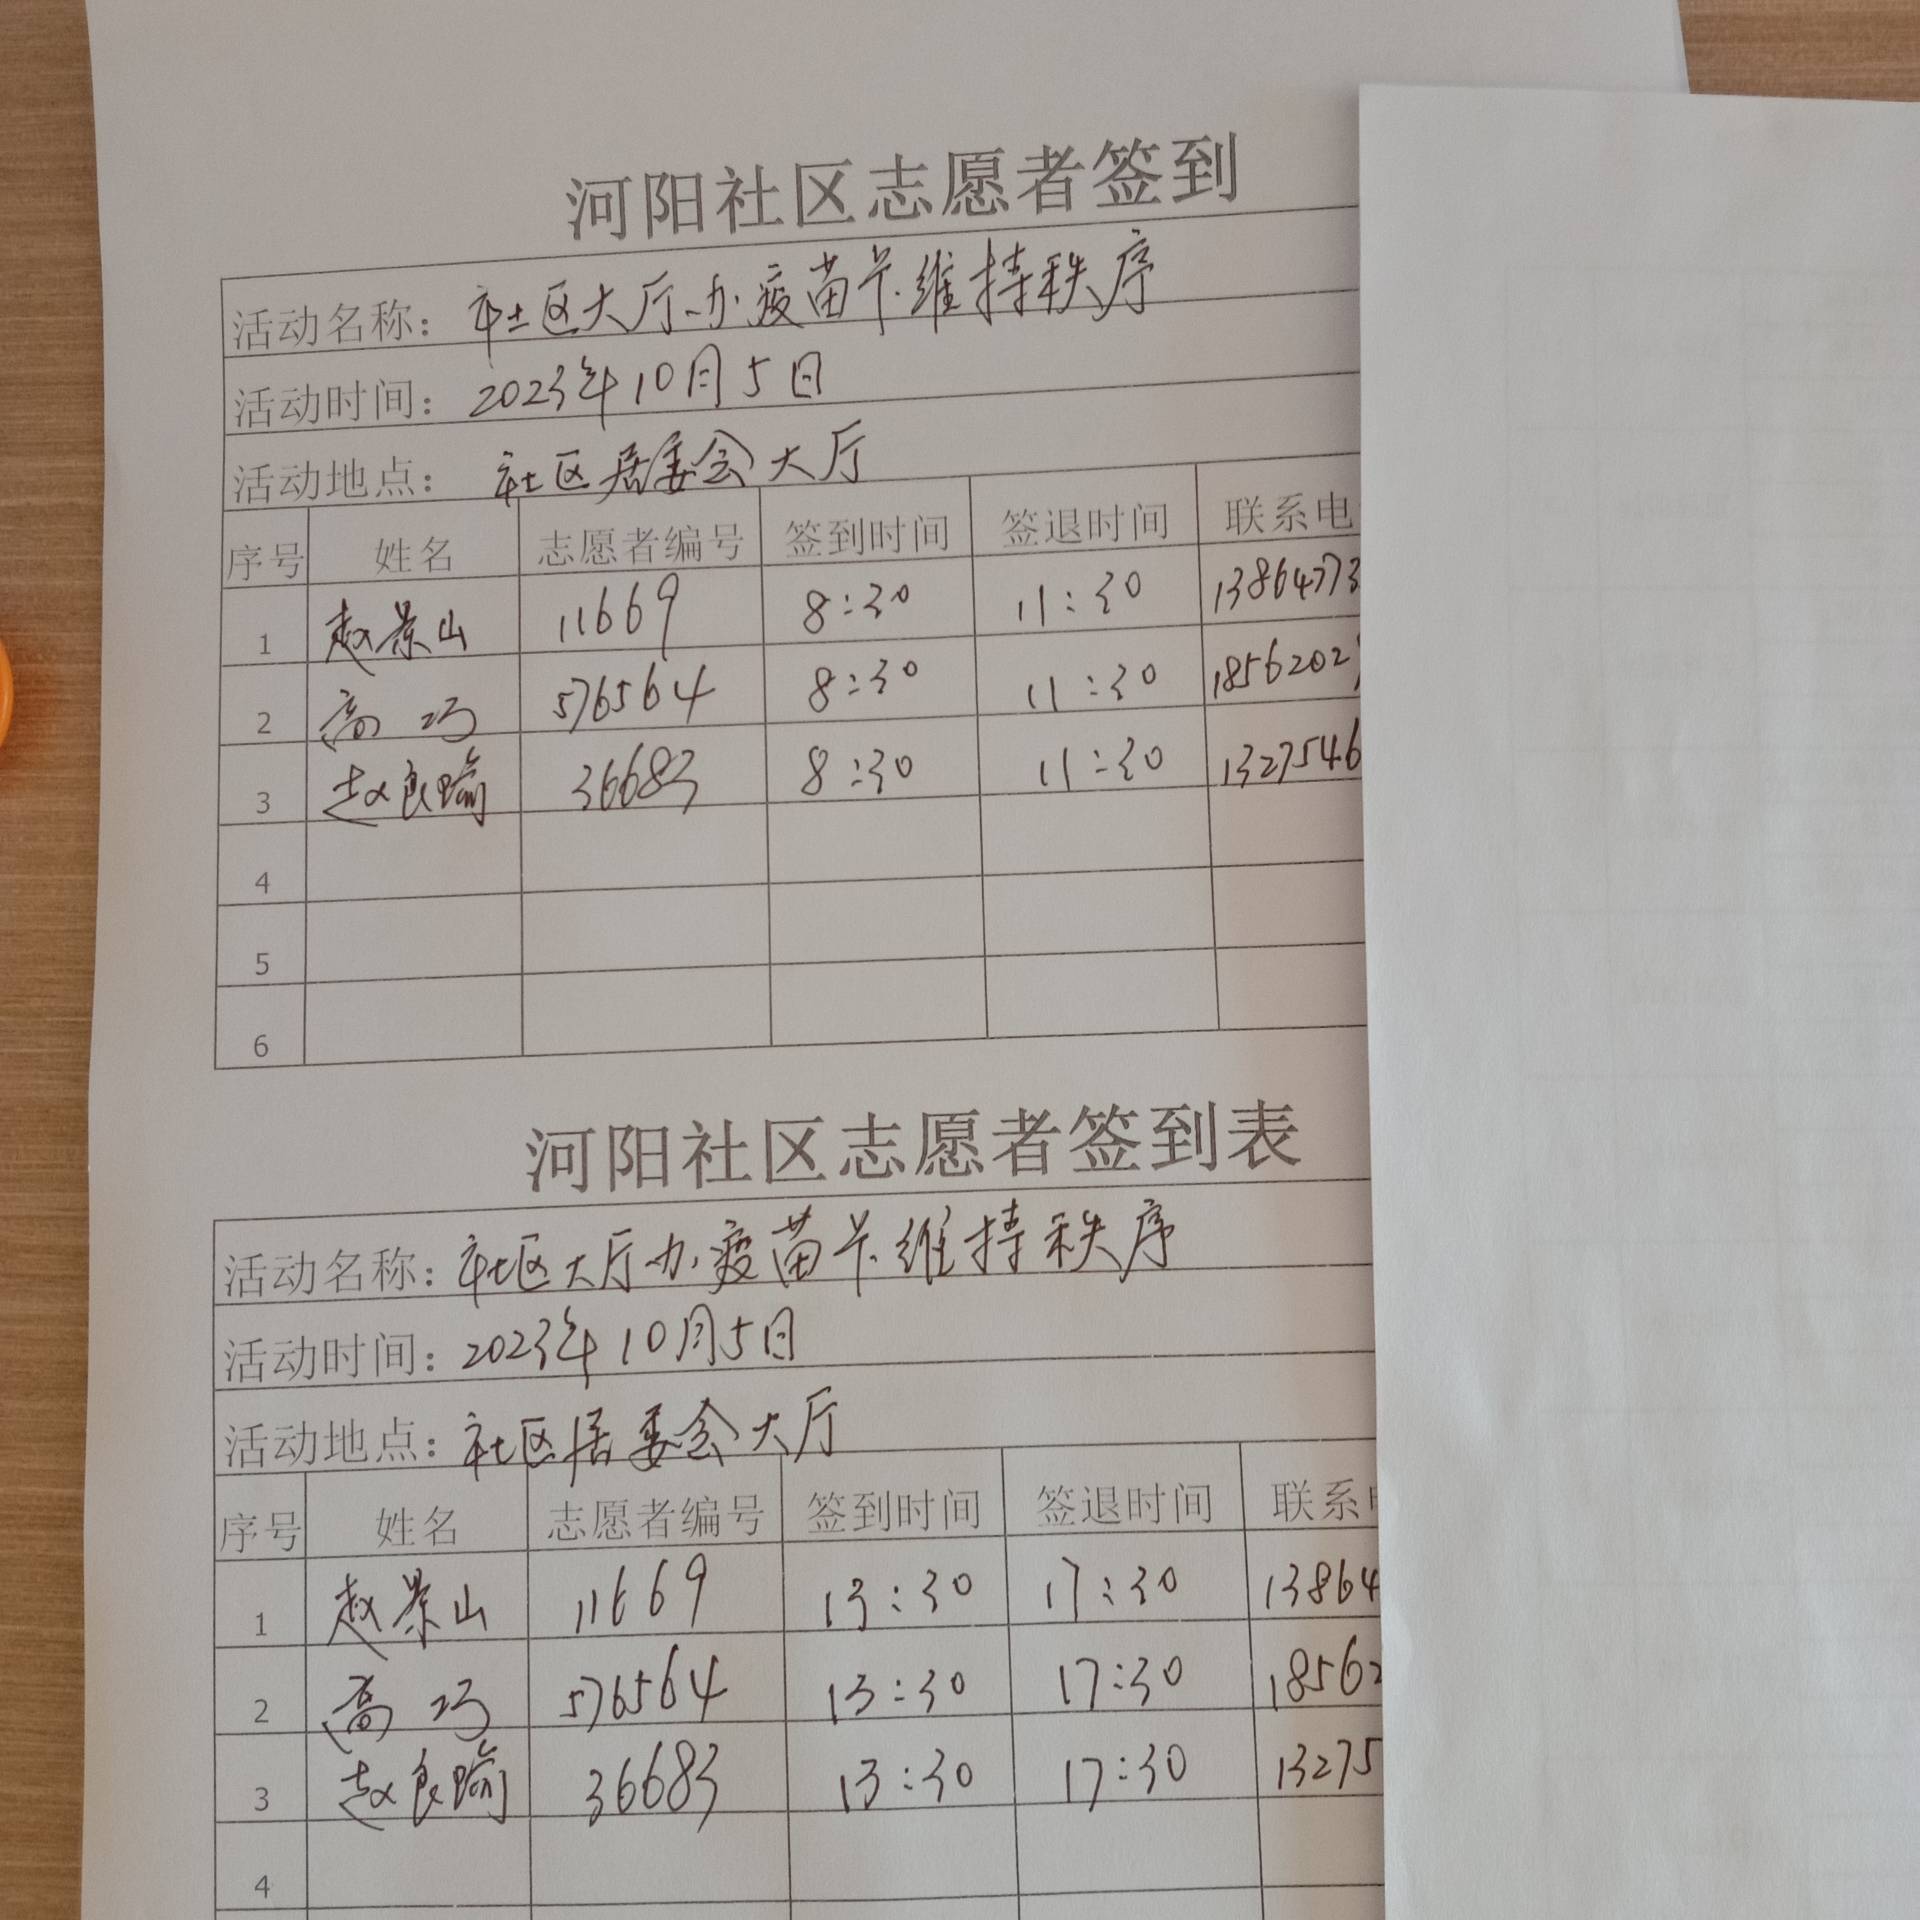 河阳社区志愿者签到
活动名称：社区大厅办疫苗卡维持秩序
活动时间：2023年10月5日
活动地点：社区居委会大厅
序号 姓名 志愿者编号 签到时间 签退时间 联系电
1 赵景山 11669 8:30 11:30 13864773
2 高巧 576564 8:30 11:30 18562027
3 赵良瑜 36683 8:30 11:30 1327546
4
5
6
河阳社区志愿者签到表
活动名称：社区大厅办疫苗卡维持秩序
活动时间：2023年10月5日
活动地点：社区居委会大厅
序号 姓名 志愿者编号 签到时间 签退时间 联系
1 赵景山 11669 13:30 17:30 13864
2 高巧 576564 13:30 17:30 18562
3 赵良瑜 36683 13:30 17:30 13275
4